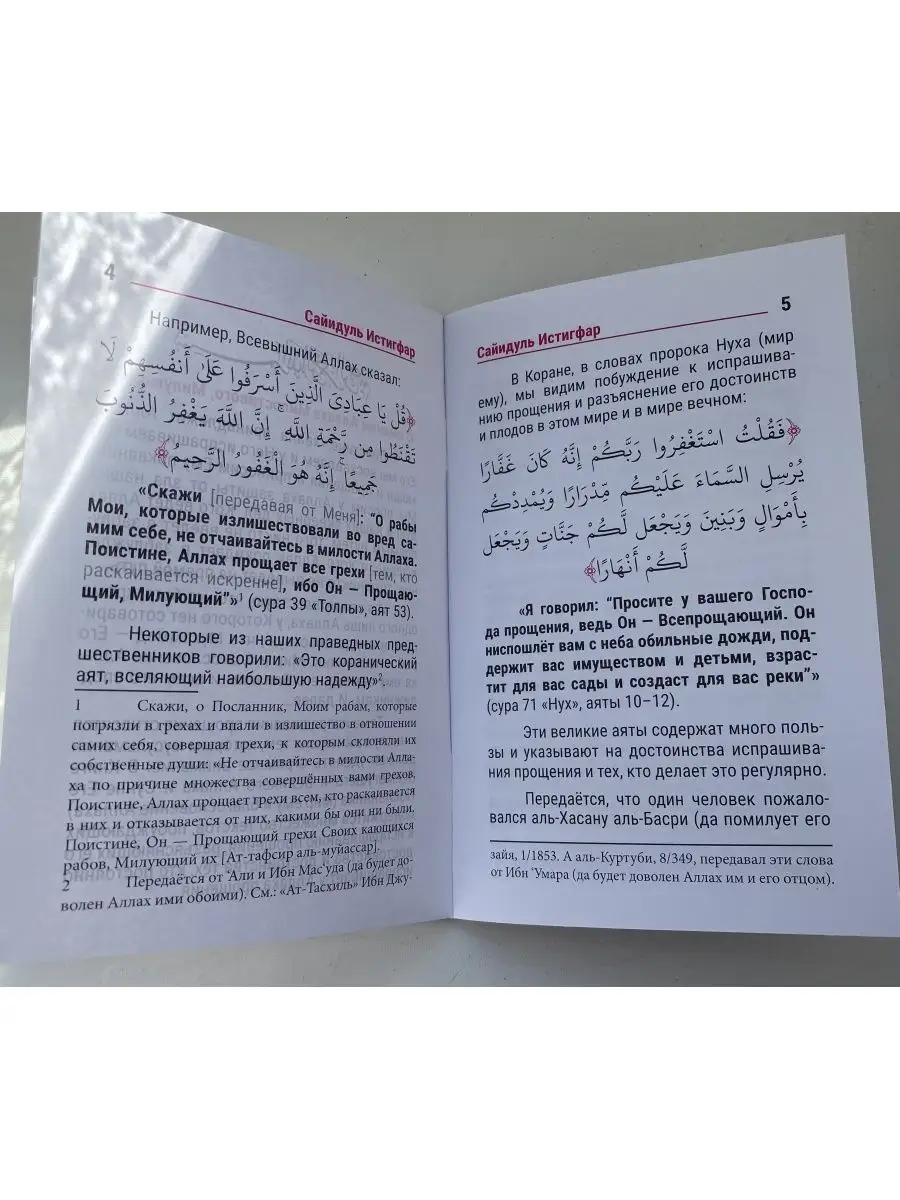 4
Сайидуль Истигфар
Например, Всевышний Аллах сказал:
﴿قُلْ يَا عِبَادِيَ الَّذِينَ أَسْرَفُوا عَلَىٰ أَنفُسِهِمْ لَا
تَقْنَطُوا مِن رَّحْمَةِ اللَّهِ ۚ إِنَّ اللَّهَ يَغْفِرُ الذُّنُوبَ
جَمِيعًا ۚ إِنَّهُ هُوَ الْغَفُورُ الرَّحِيمُ﴾
«Скажи [передавая от Меня]: “О рабы
Мои, которые излишествовали во вред са-
мим себе, не отчаивайтесь в милости Аллаха.
Поистине, Аллах прощает все грехи [тем, кто
раскаивается искренне], ибо Он — Прощаю-
щий, Милующий”»¹ (сура 39 «Толпы», аят 53).
Некоторые из наших праведных пред-
шественников говорили: «Это коранический
аят, вселяющий наибольшую надежду»².
1 Скажи, о Посланник, Моим рабам, которые
погрязли в грехах и впали в излишество в отношении
самих себя, совершая грехи, к которым склоняли их
собственные души: «Не отчаивайтесь в милости Алла-
ха по причине множества совершённых вами грехов.
Поистине, Аллах прощает грехи всем, кто раскаивается
в них и отказывается от них, какими бы они ни были.
Поистине, Он — Прощающий грехи Своих кающихся
рабов, Милующий их [Ат-тафсир аль-муйассар].
2 Передаётся от ‘Али и Ибн Мас‘уда (да будет до-
волен Аллах ими обоими). См.: «Ат-Тасхиль» Ибн Джу-
5
Сайидуль Истигфар
В Коране, в словах пророка Нуха (мир
ему), мы видим побуждение к испрашива-
нию прощения и разъяснение его достоинств
и плодов в этом мире и в мире вечном:
﴿فَقُلْتُ اسْتَغْفِرُوا رَبَّكُمْ إِنَّهُ كَانَ غَفَّارًا
يُرْسِلِ السَّمَاءَ عَلَيْكُم مِّدْرَارًا وَيُمْدِدْكُم
بِأَمْوَالٍ وَبَنِينَ وَيَجْعَل لَّكُمْ جَنَّاتٍ وَيَجْعَل
لَّكُمْ أَنْهَارًا﴾
«Я говорил: “Просите у вашего Госпо-
да прощения, ведь Он — Всепрощающий. Он
ниспошлёт вам с неба обильные дожди, под-
держит вас имуществом и детьми, взрас-
тит для вас сады и создаст для вас реки”»
(сура 71 «Нух», аяты 10–12).
Эти великие аяты содержат много поль-
зы и указывают на достоинства испрашива-
ния прощения и тех, кто делает это регулярно.
Передаётся, что один человек пожало-
вался аль-Хасану аль-Басри (да помилует его
зайя, 1/1853. А аль-Куртуби, 8/349, передавал эти слова
от Ибн ‘Умара (да будет доволен Аллах им и его отцом).